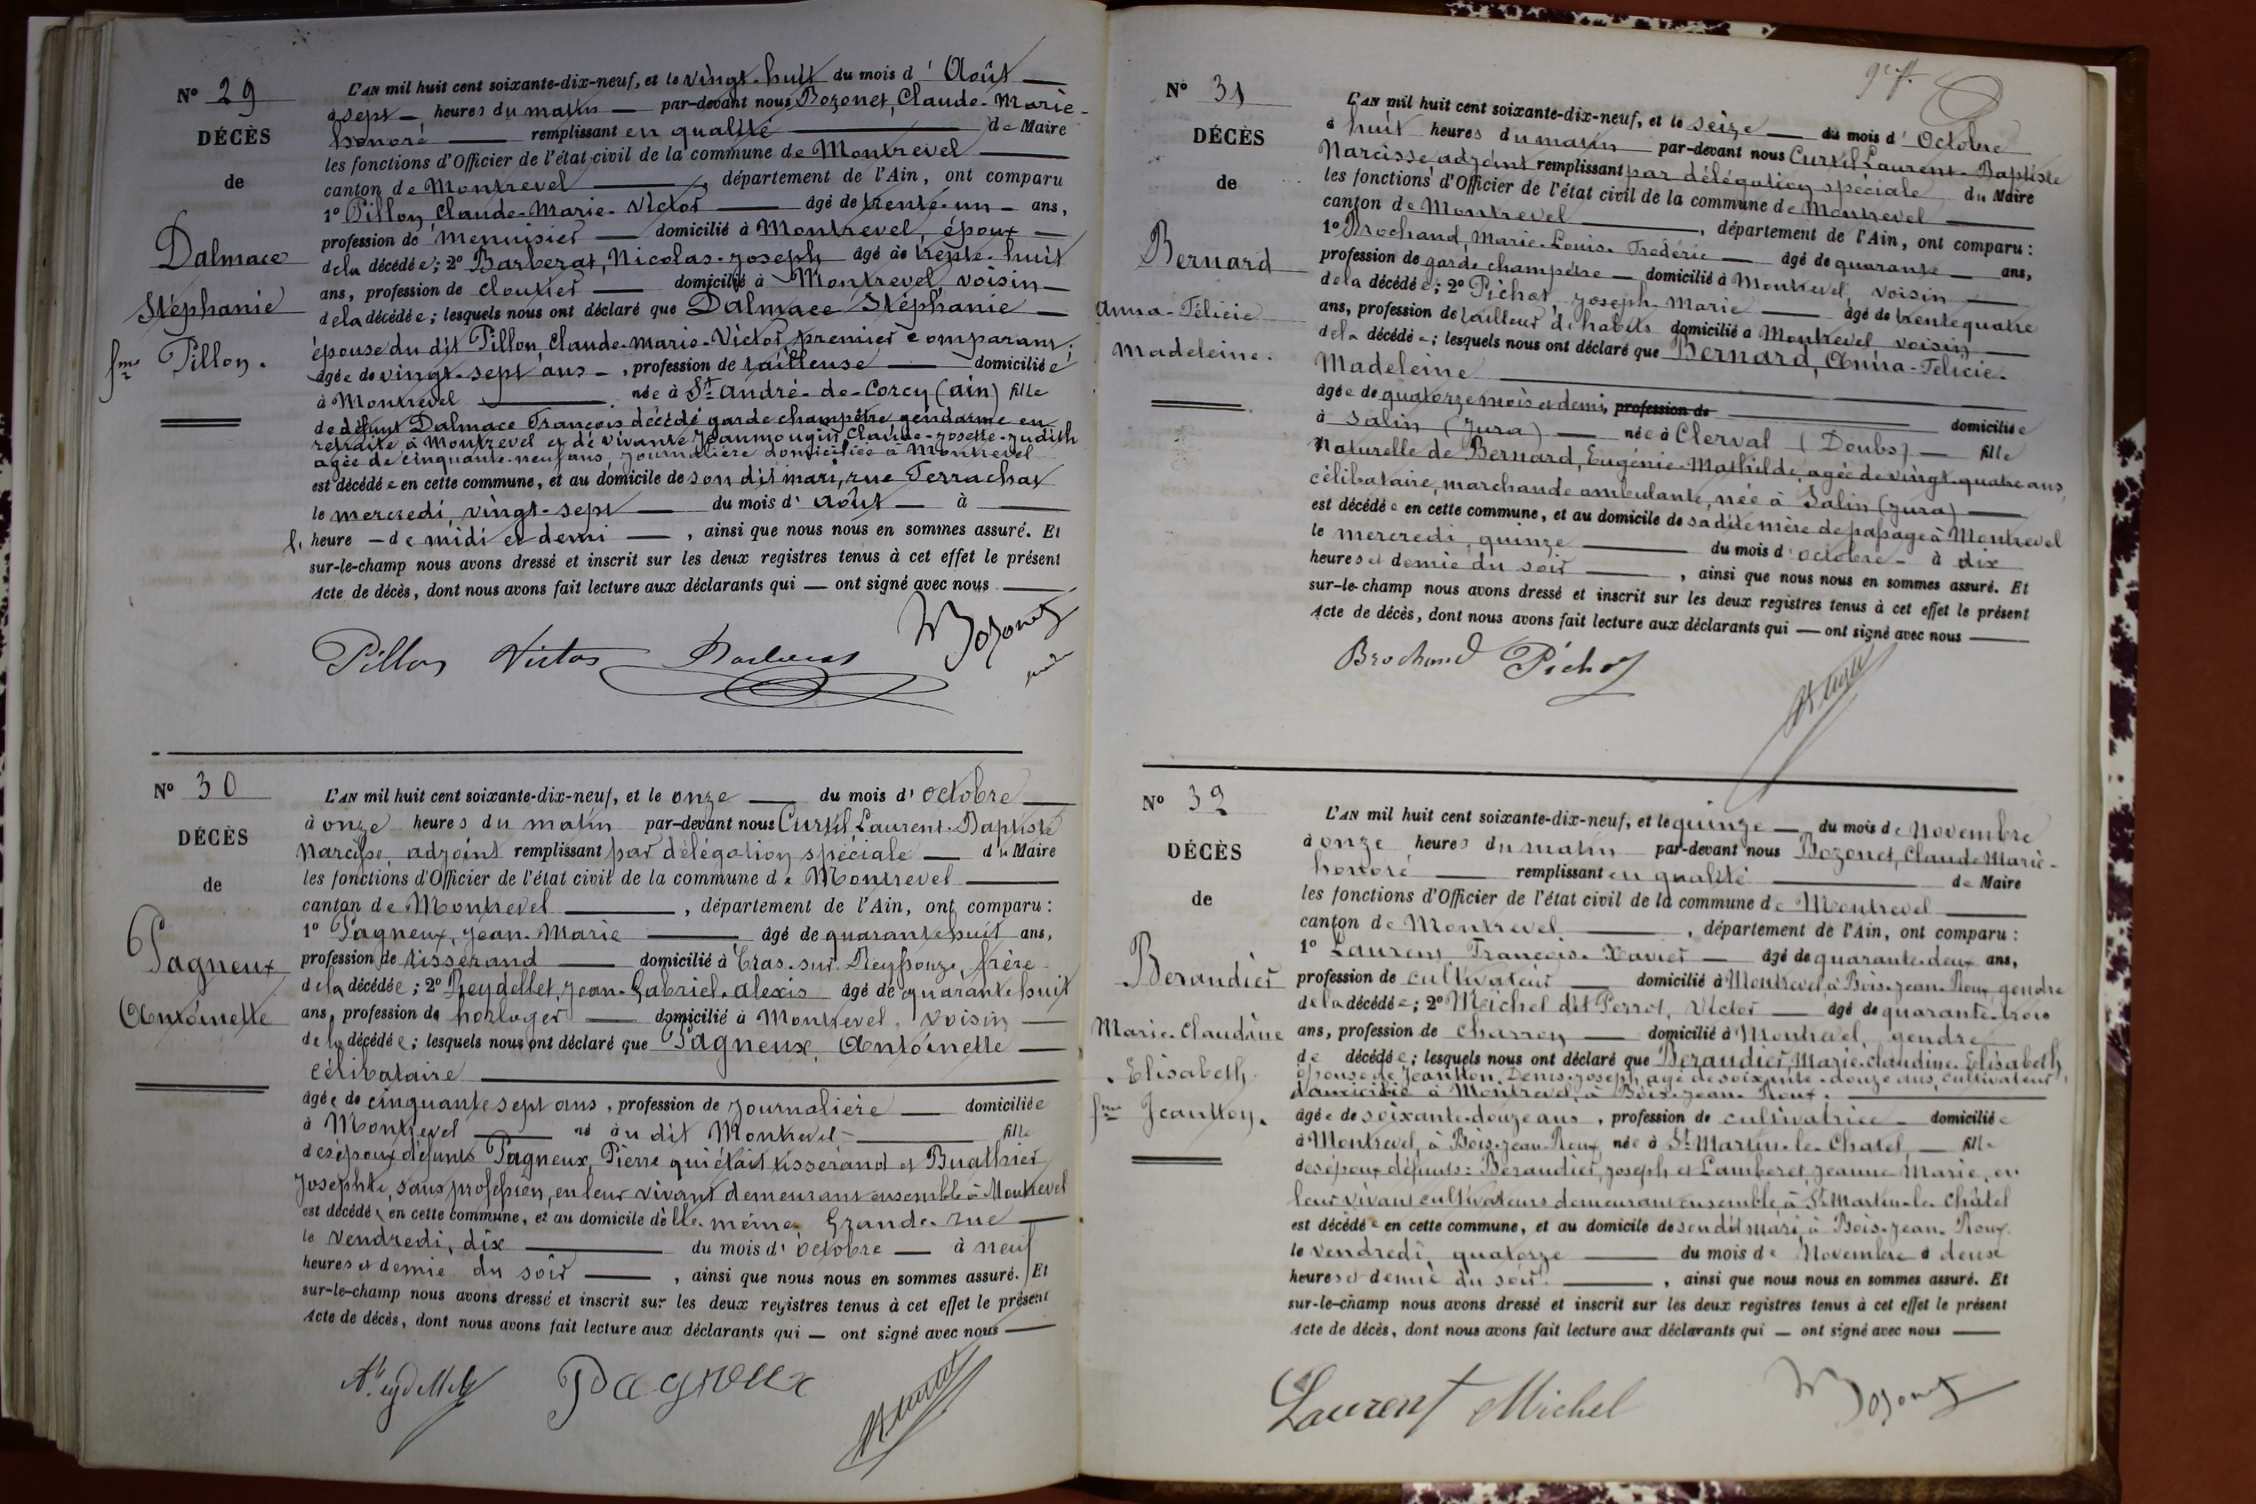 N° 29
DÉCÈS
de
Dalmace
Stéphanie
fme Pillon.
L'AN mil huit cent soixante-dix-neuf, et le vingt-huit du mois d'Août
à sept heures du matin par-devant nous Bozonet, Claude-Marie-
honoré remplissant en qualité de Maire
les fonctions d'Officier de l'état civil de la commune de Montrevel
canton de Montrevel, département de l'Ain, ont comparu
1° Pillon, Claude-Marie-Victor âgé de trente-un ans,
profession de menuisier domicilié à Montrevel, époux
de la décédée; 2° Barberat, Nicolas-Joseph âgé de trente-huit
ans, profession de cloutier domicilié à Montrevel voisin
de la décédée; lesquels nous ont déclaré que Dalmace Stéphanie
épouse du dit Pillon, Claude-Marie-Victor, premier comparant,
âgée de vingt-sept ans, profession de tailleuse domiciliée
à Montrevel née à St André-de-Corcy (ain) fille
de défunt Dalmace François décédé garde champêtre gendarme en
retraite à Montrevel et de vivante Jeanmougin, Claude-Josette-Judith
agée de cinquante-neuf ans, journalière domiciliée à Montrevel
est décédée en cette commune, et au domicile de son dit mari, rue Ferrachat
le mercredi, vingt-sept du mois d'août à
l' heure de midi et demi, ainsi que nous nous en sommes assuré. Et
sur-le-champ nous avons dressé et inscrit sur les deux registres tenus à cet effet le présent
Acte de décès, dont nous avons fait lecture aux déclarants qui ont signé avec nous
Pillon Victor Barberat Bozonet
N° 30
DÉCÈS
de
Pagneux
Antoinette
L'AN mil huit cent soixante-dix-neuf, et le onze du mois d'octobre
à onze heures du matin par-devant nous Curtil, Laurent-Baptiste
Narcisse, adjoint remplissant par délégation spéciale du Maire
les fonctions d'Officier de l'état civil de la commune de Montrevel
canton de Montrevel, département de l'Ain, ont comparu :
1° Pagneux, Jean-Marie âgé de quarante huit ans,
profession de tisserand domicilié à Cras-sur-Reyssouze, frère
de la décédée; 2° Reydellet, Jean-Gabriel-Alexis âgé de quarante huit
ans, profession de horloger domicilié à Montrevel, voisin
de la décédée; lesquels nous ont déclaré que Pagneux, Antoinette
célibataire
âgée de cinquante sept ans, profession de journalière domiciliée
à Montrevel né au dit Montrevel fille
des époux défunts Pagneux, Pierre qui était tisserand et Buathier
Josephte, sans profession, en leur vivant demeurant ensemble à Montrevel
est décédée en cette commune, et au domicile d'elle-même, Grande-rue
le vendredi, dix du mois d'octobre à neuf
heures et demie du soir, ainsi que nous nous en sommes assuré. Et
sur-le-champ nous avons dressé et inscrit sur les deux registres tenus à cet effet le présent
Acte de décès, dont nous avons fait lecture aux déclarants qui ont signé avec nous
Reydellet Pagneux
N° 31
DÉCÈS
de
Bernard
Anna-Félicie
Madeleine.
L'AN mil huit cent soixante-dix-neuf, et le seize du mois d'Octobre
à huit heures du matin par-devant nous Curtil Laurent-Baptiste
Narcisse adjoint remplissant par délégation spéciale du Maire
les fonctions d'Officier de l'état civil de la commune de Montrevel
canton de Montrevel, département de l'Ain, ont comparu :
1° Brochand, Marie-Louis-Frédéric âgé de quarante ans,
profession de garde champêtre domicilié à Montrevel, voisin
de la décédée; 2° Pichot, Joseph-Marie âgé de trente quatre
ans, profession de tailleur d'habits domicilié à Montrevel voisin
de la décédée; lesquels nous ont déclaré que Bernard, Anna-Félicie-
Madeleine
âgée de quatorze mois et demi, profession de domiciliée
à Salin (Jura) née à Clerval (Doubs) fille
naturelle de Bernard, Eugénie-Mathilde, agée de vingt-quatre ans,
célibataire, marchande ambulante, née à Salin (Jura)
est décédée en cette commune, et au domicile de sa dite mère de passage à Montrevel
le mercredi, quinze du mois d'octobre à dix
heures et demie du soir, ainsi que nous nous en sommes assuré. Et
sur-le-champ nous avons dressé et inscrit sur les deux registres tenus à cet effet le présent
Acte de décès, dont nous avons fait lecture aux déclarants qui ont signé avec nous
Brochand Pichot
N° 32
DÉCÈS
de
Beraudier
Marie-Claudine
Elisabeth
fme Jeantton.
L'AN mil huit cent soixante-dix-neuf, et le quinze du mois de Novembre
à onze heures du matin par-devant nous Bozonet, Claude-Marie-
honoré remplissant en qualité de Maire
les fonctions d'Officier de l'état civil de la commune de Montrevel
canton de Montrevel, département de l'Ain, ont comparu :
1° Laurent, François-Xavier âgé de quarante-deux ans,
profession de cultivateur domicilié à Montrevel, à Bois-Jean-Roux, gendre
de la décédée; 2° Michel dit Perrot, Victor âgé de quarante-trois
ans, profession de charron domicilié à Montrevel, gendre
de décédée; lesquels nous ont déclaré que Beraudier, Marie-Claudine-Elisabeth
épouse de Jeantton, Denis-Joseph, agé de soixante-douze ans, cultivateur,
domicilié à Montrevel, à Bois-Jean-Roux.
âgée de soixante-douze ans, profession de cultivatrice domiciliée
à Montrevel, à Bois-Jean-Roux, née à St-Martin-le-Chatel, fille
des époux défunts : Beraudier, Joseph et Lamberet, Jeanne Marie, en
leur vivant cultivateurs demeurant ensemble à St-Martin-le-Châtel
est décédée en cette commune, et au domicile de son dit mari, à Bois-Jean-Roux
le vendredi, quatorze du mois de Novembre à deux
heures et demie du soir, ainsi que nous nous en sommes assuré. Et
sur-le-champ nous avons dressé et inscrit sur les deux registres tenus à cet effet le présent
Acte de décès, dont nous avons fait lecture aux déclarants qui ont signé avec nous
Laurent Michel Bozonet